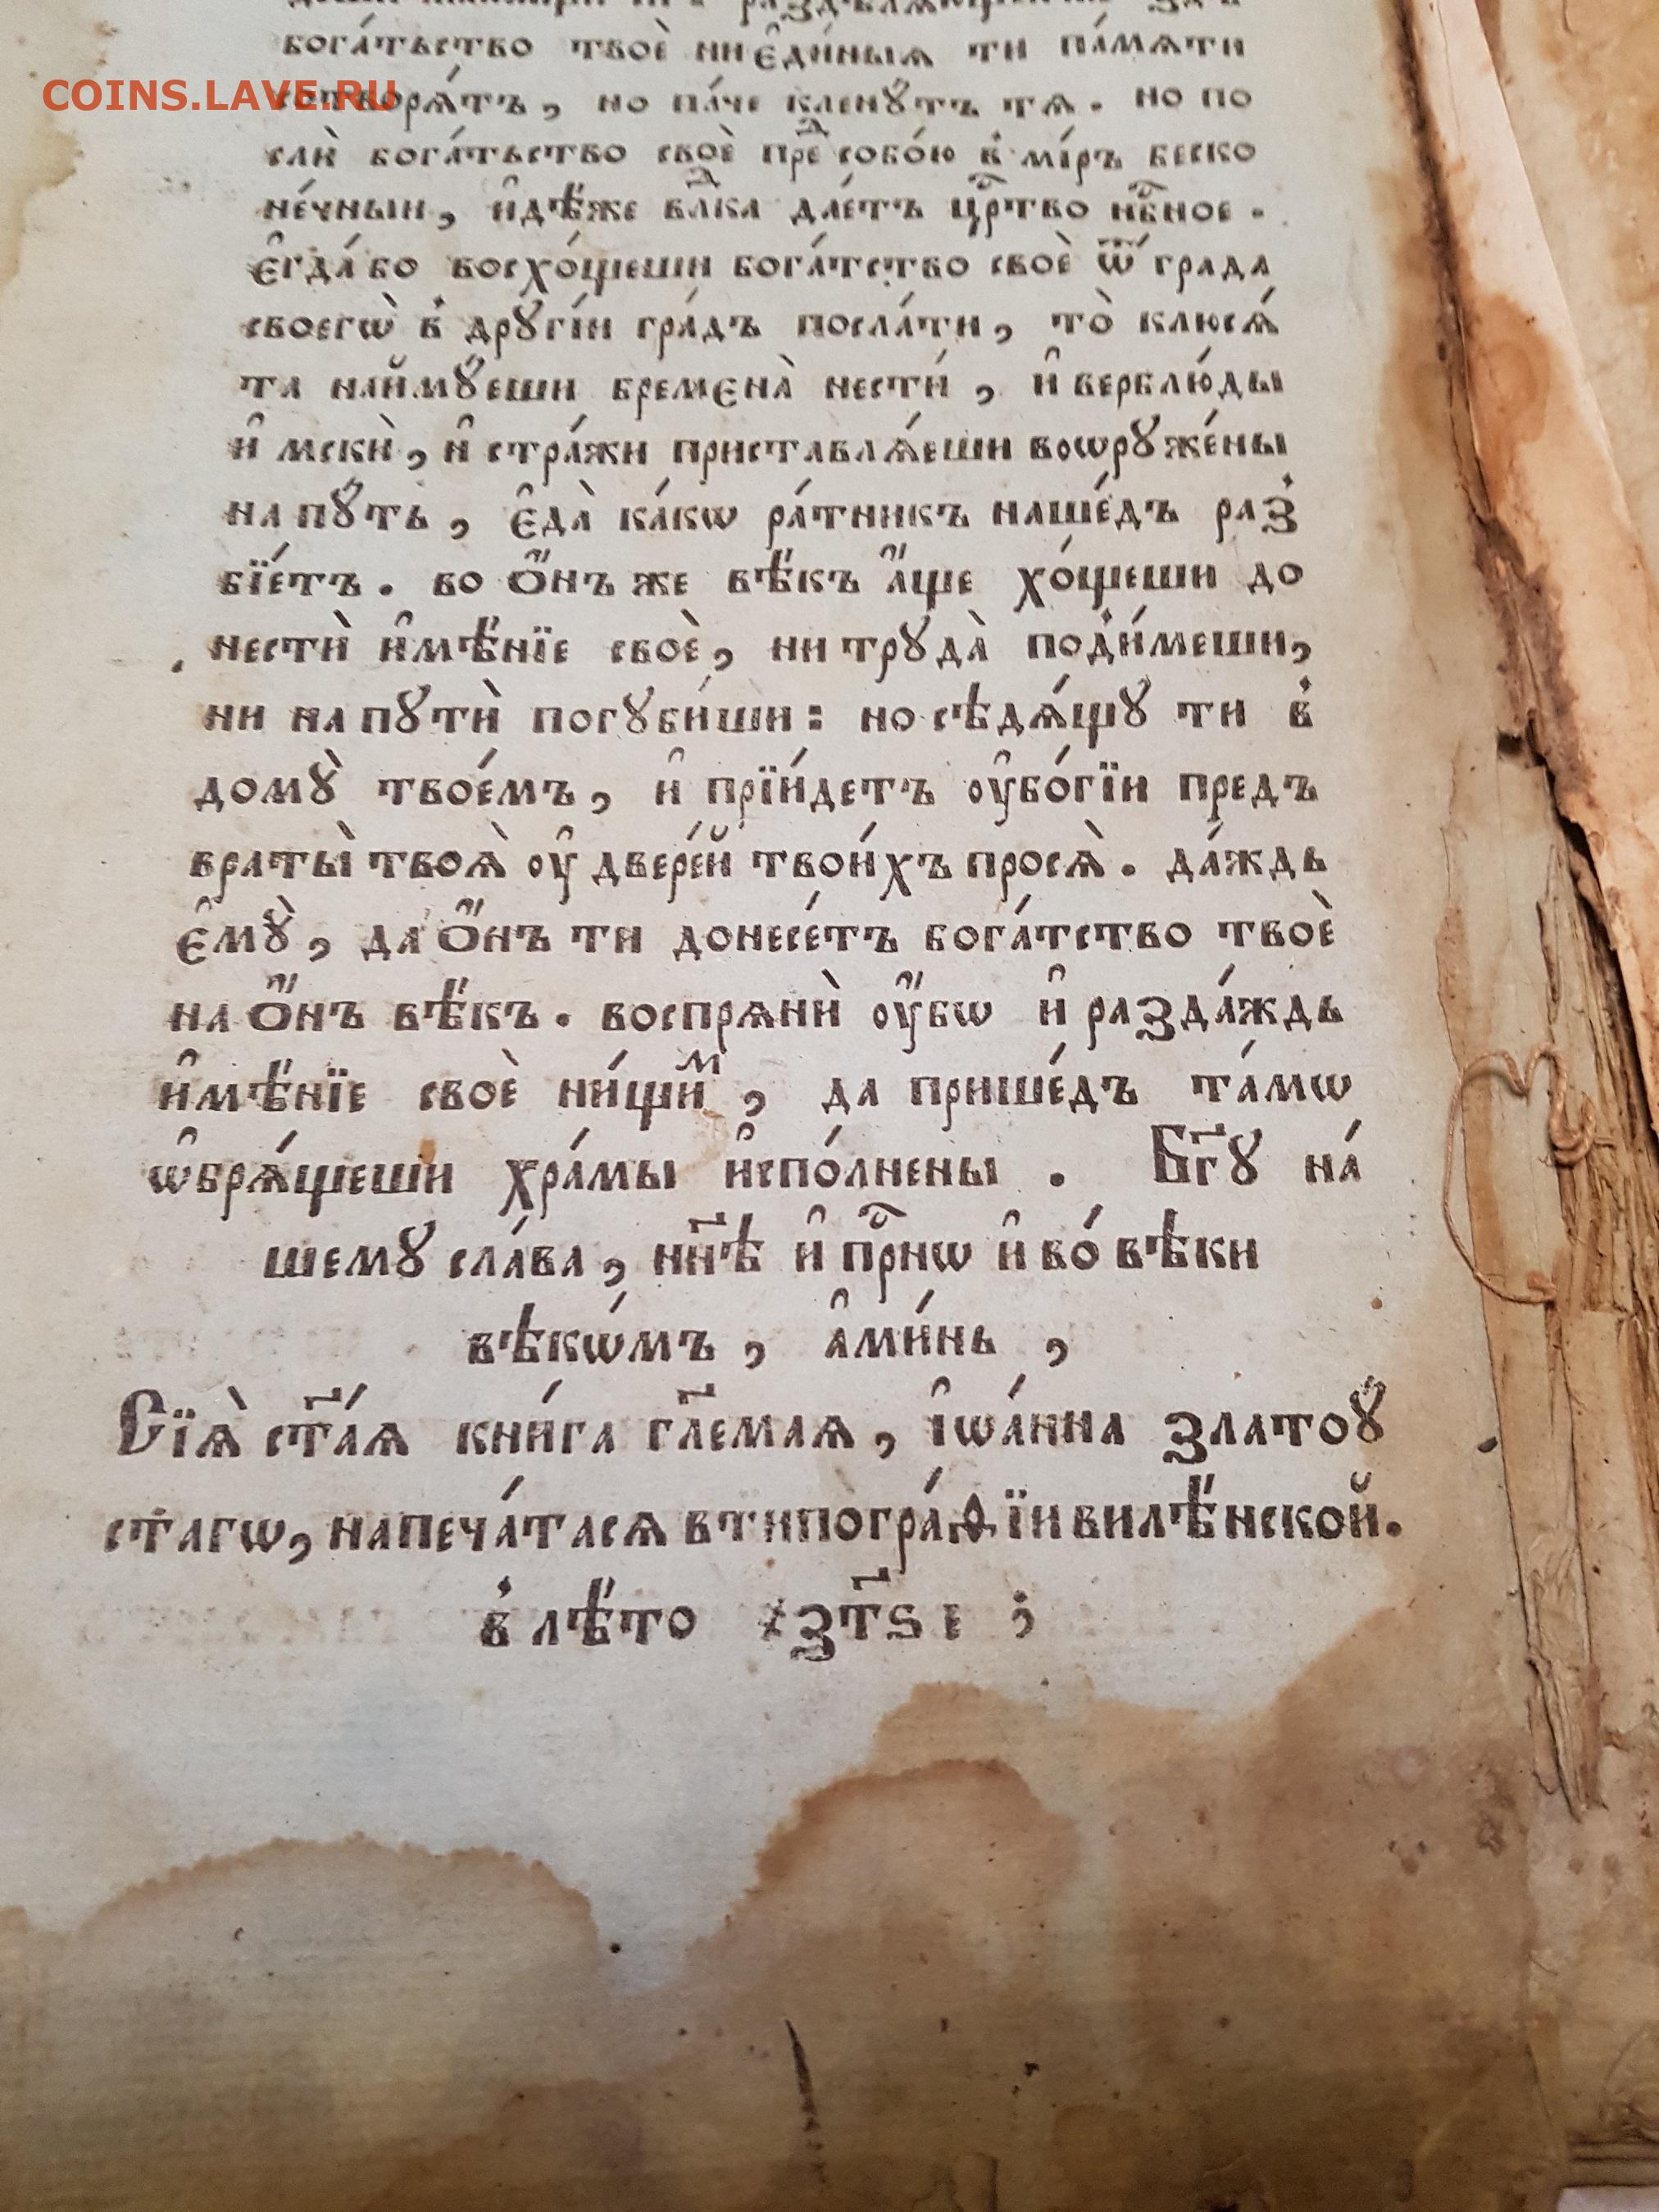 COINS.LAVE.RU
бога́тьство твоѐ ни є҆ди́ныѧ ти па́мѧти
сотворѧ́тъ, но па́че клену́тъ тѧ. но по
слѝ бога́тьство своѐ преⷣ собо́ю в̾ мі́ръ беско
не́чныи, и҆дѣ́же влⷣка дае́тъ црⷭ҇тво нбⷭ҇ное.
є҆гда́ бо восхо́щеши бога́тство своѐ ѿ гра́да
своегѡ̀ в̾ дрꙋгі́и гра́дъ посла́ти, то̀ клюсѧ́
та наймꙋ́еши бременà нести́, и҆ верблю́ды
и҆ мскѝ, и҆ стра́жи приставлѧ́еши воѡрꙋже́ны
на пꙋ́ть, є҆да̀ ка́кѡ ра́тникъ наше́дъ раз̾
бїе́тъ. во ѻ҆́нъ же вѣ́къ а҆́ще хо́щеши до
нестѝ и҆мѣ́нїе своѐ, ни трꙋда̀ под̾и́меши,
ни на пꙋтѝ погꙋби́ши: но сѣдѧ́щꙋ ти в̾
домꙋ̀ твое́мъ, и҆ прїи́детъ ᲂу҆бо́гїи предъ
враты̀ твоѧ̀ ᲂу҆ двере́й твои́хъ просѧ̀. да́ждь
є҆мꙋ̀, да ѻ҆́нъ ти донесе́тъ бога́тство твоѐ
на ѻ҆́нъ вѣ́къ. воспрѧнѝ ᲂу҆́бѡ и҆ разда́ждь
и҆мѣ́нїе своѐ ни́щиⷨ, да прише́дъ та́мѡ
ѡ҆брѧ́щеши хра́мы и҆спо́лнены. Бг҃ꙋ на́
шемꙋ сла́ва, нн҃ѣ и҆ прⷭ҇нѡ и҆ во́ вѣки
вѣкѡ́мъ, а҆ми́нь,
Сїѧ̀ ст҃а́ѧ кни́га гл҃емаѧ, і҆ѡа́нна златоꙋ́
стагѡ, напеча́тасѧ в типогра́ѳїи вилѣ́нской.
в̾ лѣ́то ҂зт҃ѕ і ;